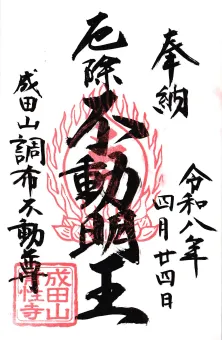 奉納
令和八年
四月廿四日
厄除
不動明王
成田山調布不動尊
成田山
性寺